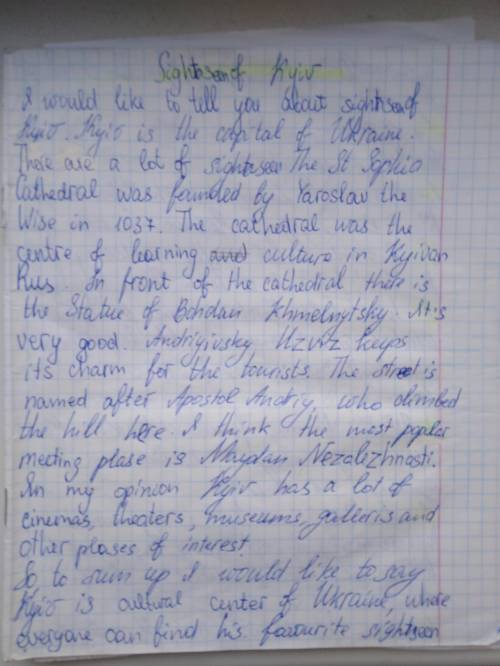 Sightseen of Kyiv
I would like to tell you about sightseen of
Kyiv. Kyiv is the capital of Ukraine.
There are a lot of sightseen. The St Sophia
Cathedral was founded by Yaroslav the
Wise in 1037. The cathedral was the
centre of learning and culture in Kyivan
Rus. In front of the cathedral there is
the Statue of Bohdan Khmelnytsky. It's
very good. Andriyivsky Uzviz keeps
its charm for the tourists. The street is
named after Apostol Andriy, who climbed
the hill here. I think the most popular
meeting plase is Maydan Nezalezhnasti.
In my opinion Kyiv has a lot of
cinemas, theaters, museums, galleris and
other plases of interest.
So to sum up I would like to say
Kyiv is cultural center of Ukraine, where
everyone can find his favourite sightseen